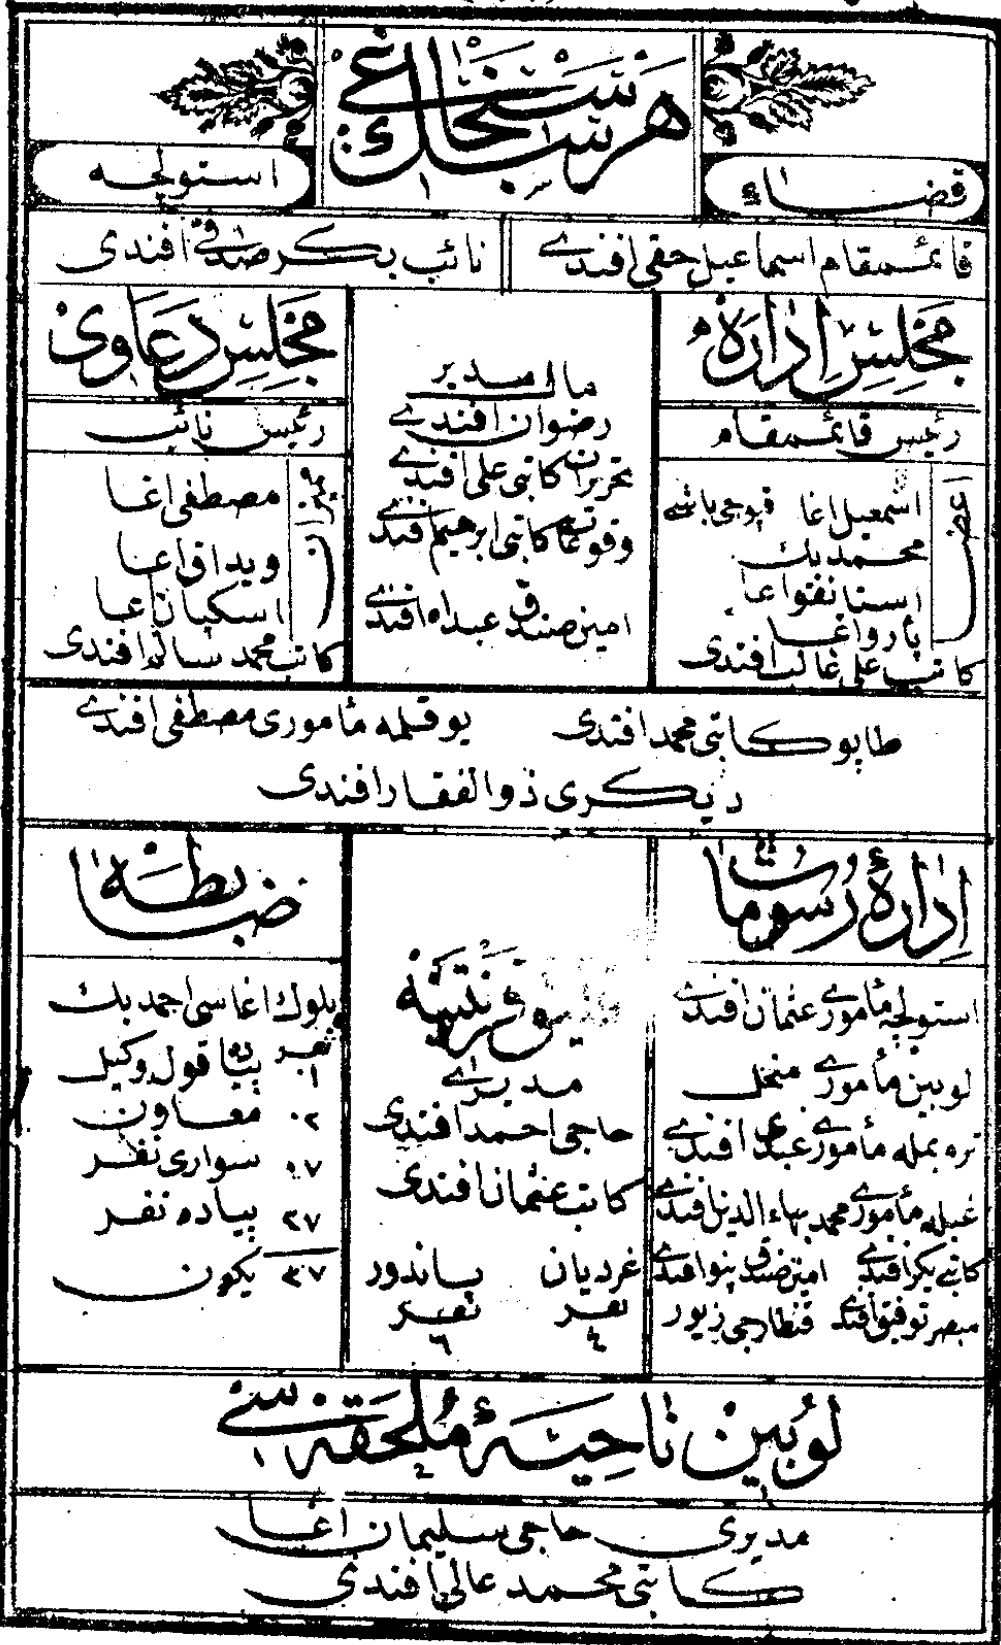 هرسك سنجاغی
قضاء
استولچه
قائممقام اسماعیل حقی افندی
نائب بكر صدقی افندی
مجلس اداره
رئیس قائممقام
اعضا
اسمعیل اغا قپوجی باشی
محمد بك
اغا
اغا
كاتب علی غالب افندی
مال مدیر
رضوان افندی
تحریرات كاتبی علی افندی
وقوعات كاتبی ابرهیم افندی
امین صندق عبدالله افندی
مجلس دعاوی
رئیس نائب
ممیزان
مصطفی اغا
اغا
اغا
كاتب محمد سالم افندی
طاپو كاتبی محمد افندی
یوقلمه مأموری مصطفی افندی
دیكری ذوالفقار افندی
ادارهٔ رسومات
استولچه مأموری عثمان افندی
لوبین مأموری منحل
مأموری عبدی افندی
مأموری محمد بهاءالدین افندی
كاتبی بكر افندی امین صندق افندی
مبصر توفیق افندی قنطارجی
قرنتینه
مدیری
حاجی احمد افندی
كاتب عثمان افندی
غردیان
نفر
٤
پاندور
نفر
٦
ضابطه
بلوك اغاسی احمد بك
نفر
١ پیاده قول وكیل
٠٢ معاون
٠٧ سواری نفر
٢٧ پیاده نفر
٣٧ یكون
لوبین ناحیهٔ ملحقه سی
مدیری حاجی سلیمان اغا
كاتبی محمد عالی افندی